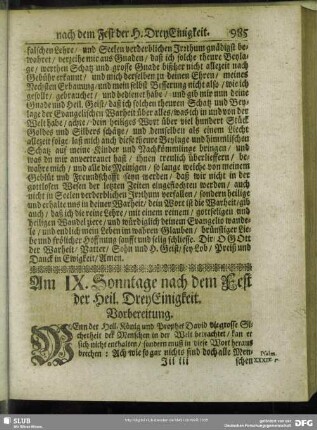 nach dem Fest der H. DreyEinigkeit. 985
falschen Lehre / und Seelen verderblichen Irrthum gnädigst be-
wahret / verzeihe mir aus Gnaden / daß ich solche theure Beyla-
ge / werthen Schatz und grosse Gnade bißher nicht allezeit nach
Gebühr erkannt / und mich derselben zu deinen Ehren / meines
Nechsten Erbauung / und mein selbst Besserung nicht also / wie ich
gesollt / gebrauchet / und bedienet habe / und gib mir nun deine
Gnade und Heil. Geist / daß ich solchen theuren Schatz und Bey-
lage der Evangelischen Warheit über alles / was ich in und von der
Welt habe / achte / dein heiliges Wort über viel hundert Stück
Goldes und Silbers schätze / und demselben als einem Liecht
allezeit folge / laß mich auch diese theure Beylage und himmlischen
Schatz auf meine Kinder und Nachkömmlinge bringen / und
was du mir anvertrauet hast / ihnen treulich überliefern / be-
wahre mich / und alle die Meinigen / so lange welche von meinem
Geblüt und Freundschafft seyn werden / daß wir nicht in der
gottlosen Wesen der letzten Zeiten eingeflochten werden / auch
nicht in Seelen verderblichen Irrthum verfallen / sondern heilige
und erhalte uns in deiner Warheit / dein Wort ist die Warheit / gib
auch / daß ich die reine Lehre / mit einem reinem / gottseligen und
heiligen Wandel ziere / und würdiglich deinem Evangelio wande-
le / und endlich mein Leben im wahren Glauben / brünstiger Lie-
be und frölicher Hoffnung sanfft und selig schliesse. Dir O GOtt
der Warheit / Vatter / Sohn und H. Geist / sey Lob / Preiß und
Danck in Ewigkeit / Amen.
Am IX. Sonntage nach dem Fest
der Heil. DreyEinigkeit.
Vorbereitung.
Wenn der Heil. König und Prophet David die grosse Si-
cherheit der Menschen in der Welt betrachtet / kan er
sich nicht enthalten / sondern muß in diese Wort heraus
brechen : Ach wie so gar nichts sind doch alle Men-
Jii iii schen
Psalm.
SLUB
DFG